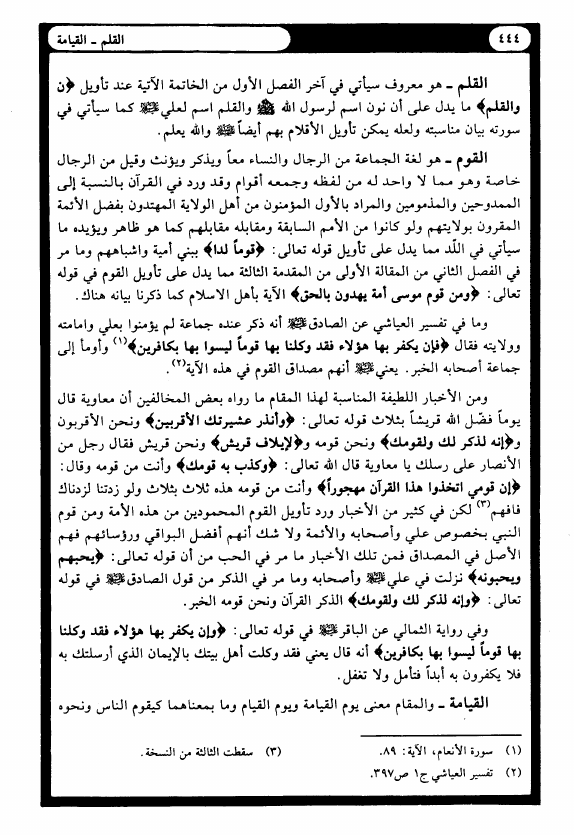 ٤٤٤
القلم ـ القيامة
القلم ـ هو معروف سيأتي في آخر الفصل الأول من الخاتمة الآتية عند تأويل ﴿ن
والقلم﴾ ما يدل على أن نون اسم لرسول الله ﷺ والقلم اسم لعلي عليه السلام كما سيأتي في
سورته بيان مناسبته ولعله يمكن تأويل الأقلام بهم أيضاً عليهم السلام والله يعلم.
القوم ـ هو لغة الجماعة من الرجال والنساء معاً ويذكر ويؤنث وقيل من الرجال
خاصة وهو مما لا واحد له من لفظه وجمعه أقوام وقد ورد في القرآن بالنسبة إلى
الممدوحين والمذمومين والمراد بالأول المؤمنون من أهل الولاية المهتدون بفضل الأئمة
المقرون بولايتهم ولو كانوا من الأمم السابقة ومقابله مقابلهم كما هو ظاهر ويؤيده ما
سيأتي في اللّد مما يدل على تأويل قوله تعالى: ﴿قوماً لدا﴾ ببني أمية واشباههم وما مر
في الفصل الثاني من المقالة الأولى من المقدمة الثالثة مما يدل على تأويل القوم في قوله
تعالى: ﴿ومن قوم موسى أمة يهدون بالحق﴾ الآية بأهل الاسلام كما ذكرنا بيانه هناك.
وما في تفسير العياشي عن الصادق عليه السلام أنه ذكر عنده جماعة لم يؤمنوا بعلي وامامته
وولايته فقال ﴿فإن يكفر بها هؤلاء فقد وكلنا بها قوماً ليسوا بها بكافرين﴾(١) وأومأ إلى
جماعة أصحابه الخبر. يعني عليه السلام أنهم مصداق القوم في هذه الآية(٢).
ومن الأخبار اللطيفة المناسبة لهذا المقام ما رواه بعض المخالفين أن معاوية قال
يوماً فضّل الله قريشاً بثلاث قوله تعالى: ﴿وأنذر عشيرتك الأقربين﴾ ونحن الأقربون
و﴿إنه لذكر لك ولقومك﴾ ونحن قومه و﴿لإيلاف قريش﴾ ونحن قريش فقال رجل من
الأنصار على رسلك يا معاوية قال الله تعالى: ﴿وكذب به قومك﴾ وأنت من قومه وقال:
﴿إن قومي اتخذوا هذا القرآن مهجوراً﴾ وأنت من قومه هذه ثلاث بثلاث ولو زدتنا لزدناك
فافهم(٣) لكن في كثير من الأخبار ورد تأويل القوم المحمودين من هذه الأمة ومن قوم
النبي بخصوص علي وأصحابه والأئمة ولا شك أنهم أفضل البواقي ورؤسائهم فهم
الأصل في المصداق فمن تلك الأخبار ما مر في الحب من أن قوله تعالى: ﴿يحبهم
ويحبونه﴾ نزلت في علي عليه السلام وأصحابه وما مر في الذكر من قول الصادق عليه السلام في قوله
تعالى: ﴿وإنه لذكر لك ولقومك﴾ الذكر القرآن ونحن قومه الخبر.
وفي رواية الثمالي عن الباقر عليه السلام في قوله تعالى: ﴿وإن يكفر بها هؤلاء فقد وكلنا
بها قوماً ليسوا بها بكافرين﴾ أنه قال يعني فقد وكلت أهل بيتك بالإيمان الذي أرسلتك به
فلا يكفرون به أبداً فتأمل ولا تغفل.
القيامة ـ والمقام معنى يوم القيامة ويوم القيام وما بمعناهما كيقوم الناس ونحوه
(١) سورة الأنعام، الآية: ٨٩.
(٢) تفسير العياشي ج١ ص٣٩٧.
(٣) سقطت الثالثة من النسخة.